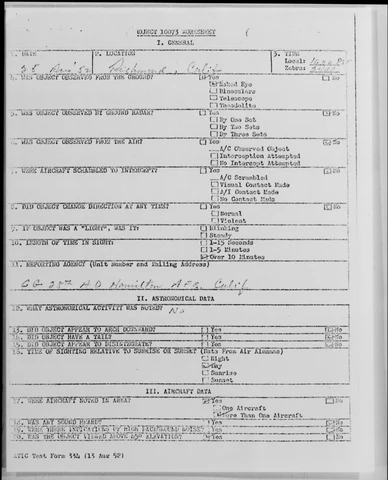 OBJECT 10073 WORKSHEET
I. GENERAL
1. DATE 2. LOCATION 3. TIME
25 Richmond, Calif Local:
Zebra:
4. WAS OBJECT OBSERVED FROM THE GROUND? Yes No
Naked Eye
Binoculars
Telescope
Theodolite
5. WAS OBJECT OBSERVED BY GROUND RADAR? Yes No
By One Set
By Two Sets
Or Three Sets
6. WAS OBJECT OBSERVED FROM THE AIR? Yes No
A/C Observed Object
Interception Attempted
No Intercept Attempted
7. WERE AIRCRAFT SCRAMBLED TO INTERCEPT? Yes No
A/C Scrambled
Visual Contact Made
A/I Contact Made
No Contact Made
8. DID OBJECT CHANGE DIRECTION AT ANY TIME? Yes No
Normal
Violent
9. IF OBJECT WAS A "LIGHT", WAS IT: Blinking
Steady
10. LENGTH OF TIME IN SIGHT: 1-15 Seconds
1-5 Minutes
Over 10 Minutes
11. REPORTING AGENCY (Unit Number and Mailing Address)
CG 28th AD Hamilton AFB, Calif
II. ASTRONOMICAL DATA
12. WHAT ASTRONOMICAL ACTIVITY WAS NOTED? No
13. DID OBJECT APPEAR TO ARCH DOWNWARD? Yes No
14. DID OBJECT HAVE A TAIL? Yes No
15. DID OBJECT APPEAR TO DISINTEGRATE? Yes No
16. TIME OF SIGHTING RELATIVE TO SUNRISE OR SUNSET (Data From Air Almanac)
Night
Day
Sunrise
Sunset
III. AIRCRAFT DATA
17. WERE AIRCRAFT NOTED IN AREA? Yes No
One Aircraft
More Than One Aircraft
18. WAS ANY SOUND HEARD? Yes No
19. WERE THERE INDICATIONS OF HIGH BACKGROUND NOISE? Yes No
20. WAS THE OBJECT VIEWED ABOVE 45° ELEVATION? Yes No
ATIC Test Form 334 (13 Aug 52)